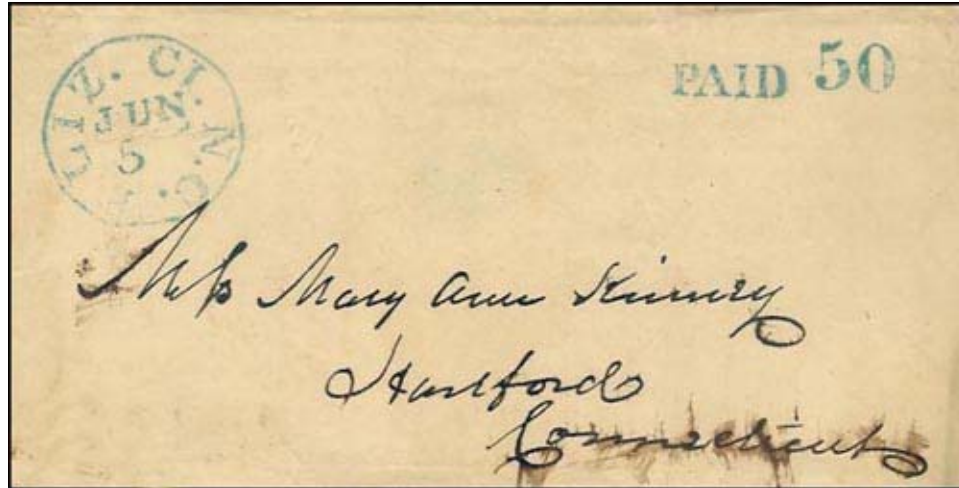 ELIZ. CI. N.C.
JUN
5
PAID 50
Miss Mary Ann Kinney
Hartford
Connecticut